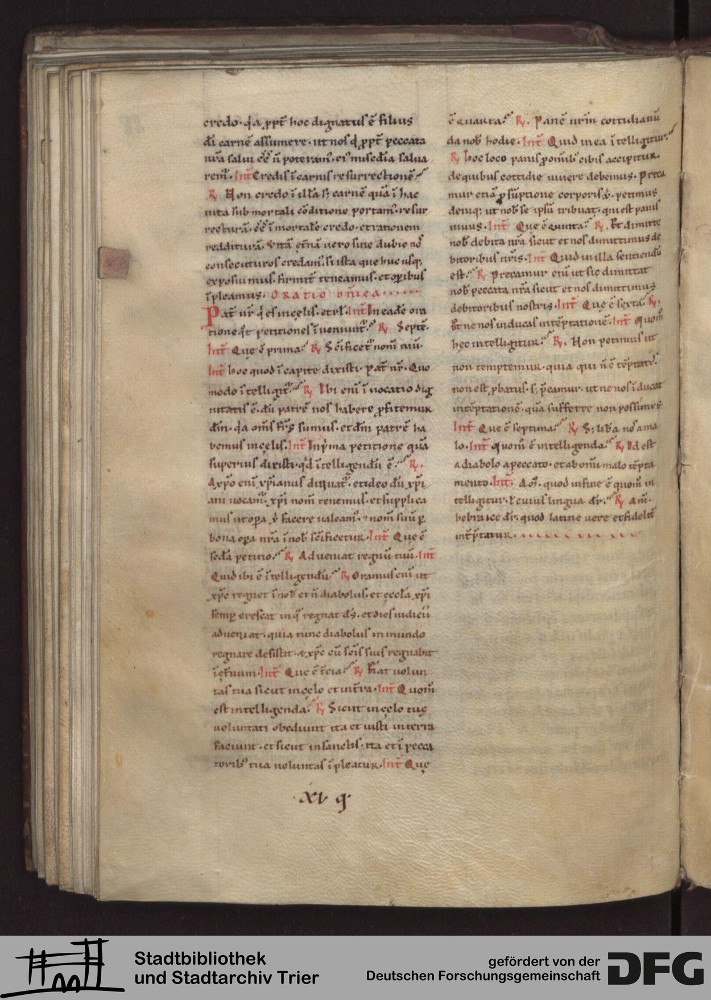 credo. q̄a ꝓpt̄ hoc dignatus ē filius
dī carnē assumere. ut nos q̄ ꝓpt̄ peccata
nr̄a salui eē n̄ poteram᷒. et᷒ misc̄dia salua
rem᷒. Int̄ Credis ī carnis resurrectionē
R̄ Non credo ī illā sī carnē qua ī hac
uita sub mortali cōditione portam᷒. resur
recturā. ē īmortalē credo. et rationem
redditurā. uitā et̄nā uero sine dubio nos
consecuturos credam᷒. si ista que huc usq;
exposuimus. firmit̄ teneamus. et opibus
īpleamus. Oratio
Pat̄ nr̄ q̄ es in celis. et rl̄. Int̄ In eadē ora
tione q̄t petitiones īueniunt᷒. R̄ Septē.
Int̄ Que ē prima. R̄ Sc̄ificet᷒ nom̄ tuū.
Int̄ hoc quod ī capite dixisti. pat̄ nr̄. Quo
modo ītelligit᷒. R̄ Ibi eni ī uocatio dig
nitatis ē. dm̄ patrē nos habere ꝓfitemur
dīm. q̄a om̄s fr̄s sumus. et dm̄ patrē ha
bemus in celis. Int̄ In p̄ma petitione qua
superius dixisti. qd̄ ītelligendū ē. R̄.
A xp̄o eni xp̄ianus dicit᷒. et ideo dū xp̄i
ani uocam᷒. xp̄i nom̄ tenemus. et supplica
mus ut opa facere ualeam᷒. nom̄ suū p̄
bona opa nr̄a ī nob̄ sc̄ificetur. Int̄ Que ē
sc̄da petitio. R̄ Adueniat regnū tuū. Int̄
Quid ibi ē ītelligendū. R̄ Oramus eni ut
xp̄c regnet ī nob̄ et n̄ diabolus. et eccl̄a xp̄i
semp̄ crescat in q̄ regnat ds̄. et dies iudicii
adueniat. quia tunc diabolus in mundo
regnare desistit. xp̄c cū sc̄is suis regnabit
īet̄num. Int̄ Que ē t̄cia. R̄ Fiat uolun
tas tua sicut in celo et in t̄ra. Int̄ Quom̄
est intelligenda. R̄ Sicut in celo tue
uoluntati obediunt ita et iusti in terra
faciunt. et sicut in sanctis. ita et ī pecca
torib᷒ tua uoluntas īpleatur. Int̄ Que
.XV q̄.
ē quarta. R̄. Panē nr̄m cottidianū
da nob̄ hodie. Int̄ Quid in ea ītelligitur.
R̄ hoc loco panis ꝓ omib᷒ cibis accipitur.
de quibus cottidie uiuere debemus. Preca
mur etiā ꝓ sūptione corporis. petimus
deniq; ut nob̄ se ipsū tribuat. qui est panis
uiuus. Int̄ Que ē quinta. R̄. Et dimitte
nob̄ debita nr̄a sicut et nos dimittimus de
bitoribus nr̄is. Int̄ Quid in illa sentiendū
est. R̄ Precamur eni ut sic dimittat
nob̄ peccata nr̄a sicut et nos dimittimus
debitoribus nostris. Int̄ Que ē sexta. R̄.
Et ne nos inducas intēptationē. Int̄ quom̄
hec intelligitur. R̄. Non petimus ut
non temptemur. quia qui n̄ ē tēptat᷒.
non est ꝓbatus. s; p̄camur. ut ne nos īducat
intēptatione. quā sufferre non possum᷒.
Int̄ Que ē septima. R̄ S; liƀa nos a ma
lo. Int̄ quom̄ ē intelligenda. R̄ Id est
a diabolo a peccato. et ab om̄i malo tēpta
mento. Int̄. Am̄. quod in fine ē quom̄ in
telligitur. ł cuius lingua dr̄. R̄ Am̄.
hebraice dr̄. quod latine uere et fidelit̄
int̄p̄tatur.
Stadtbibliothek
und Stadtarchiv Trier
gefördert von der
Deutschen Forschungsgemeinschaft
DFG